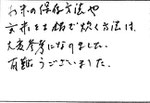 お米の保存方法や
玄米を土鍋で炊く方法は、
大変参考になりました。
有難うございました。